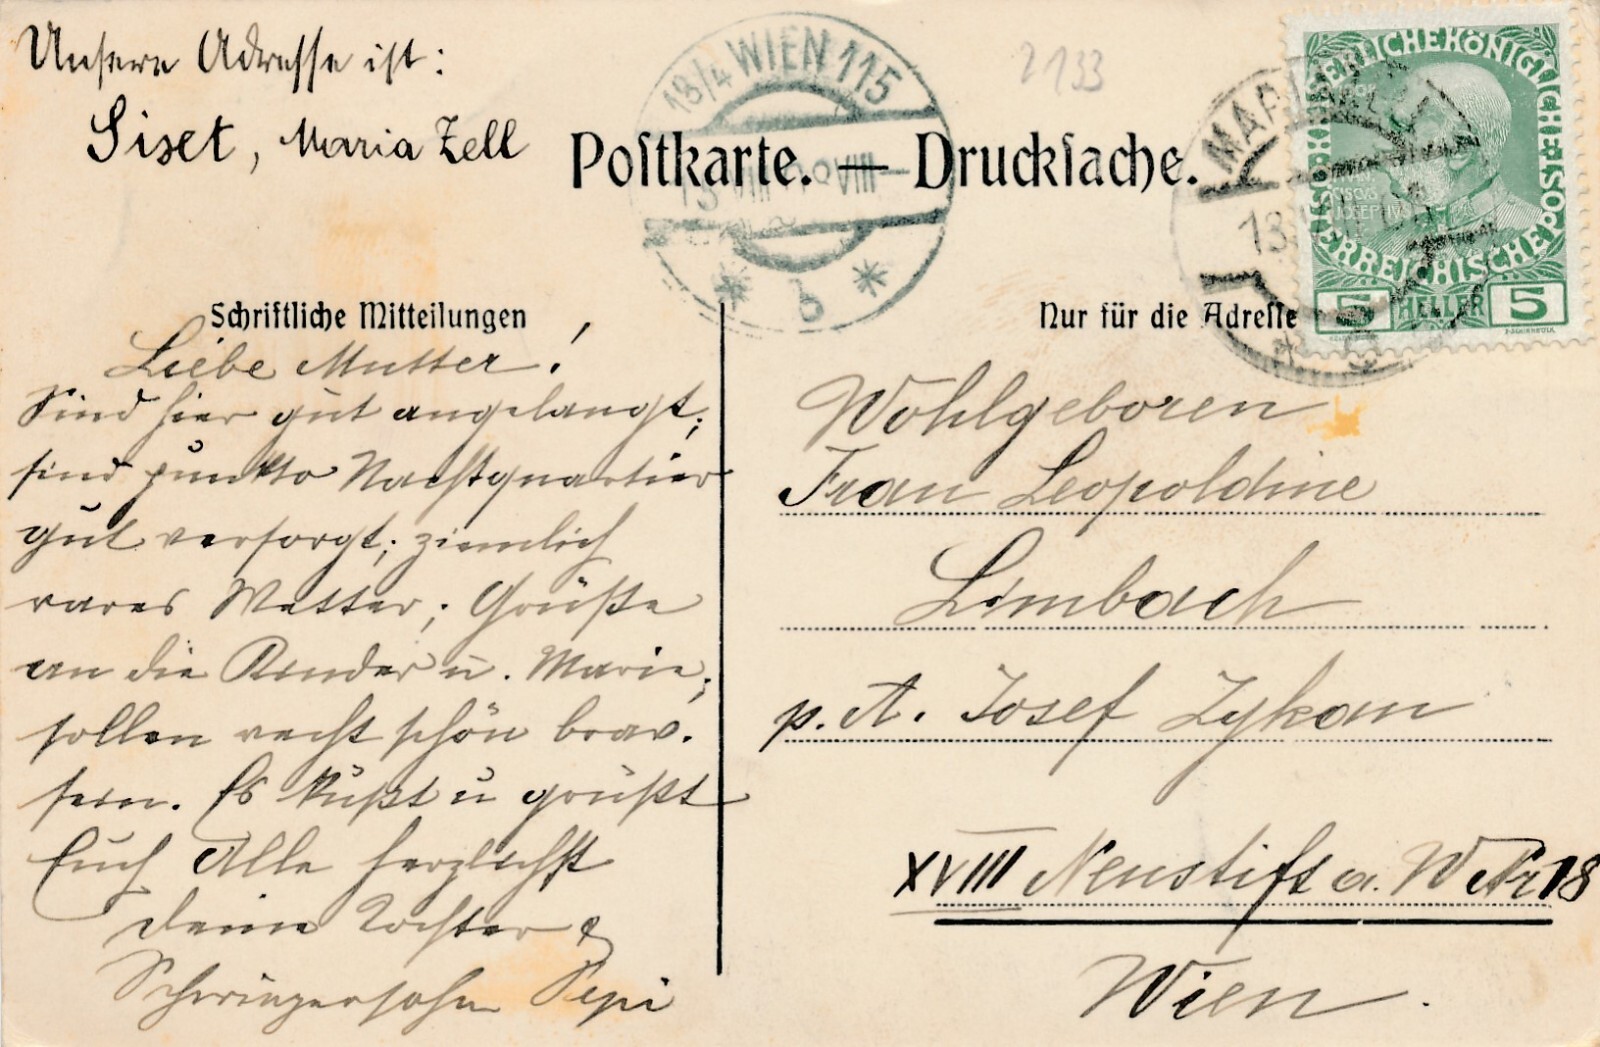 Unsere Adresse ist:
Siset, Maria Zell
2133
18/4 WIEN 115
Postkarte. — Drucksache.
MARIAZELL
KAISERLICHE KÖNIGLICHE ÖSTERREICHISCHE POST
5 HELLER 5
Schriftliche Mitteilungen
Liebe Mutter!
Sind hier gut angelangt;
sind punkto Nachtquartier
gut versorgt; ziemlich
rares Wetter; Grüße
an die Kinder u. Marie;
sollen recht schön brav.
sein. Es küßt u grüßt
Euch Alle herzlichst
deine Tochter &
Schwiegersohn Pepi
Nur für die Adresse
Wohlgeboren
Frau Leopoldine
Limbach
p. A. Josef Zykan
XVIII Neustift a. W Nr 18
Wien.